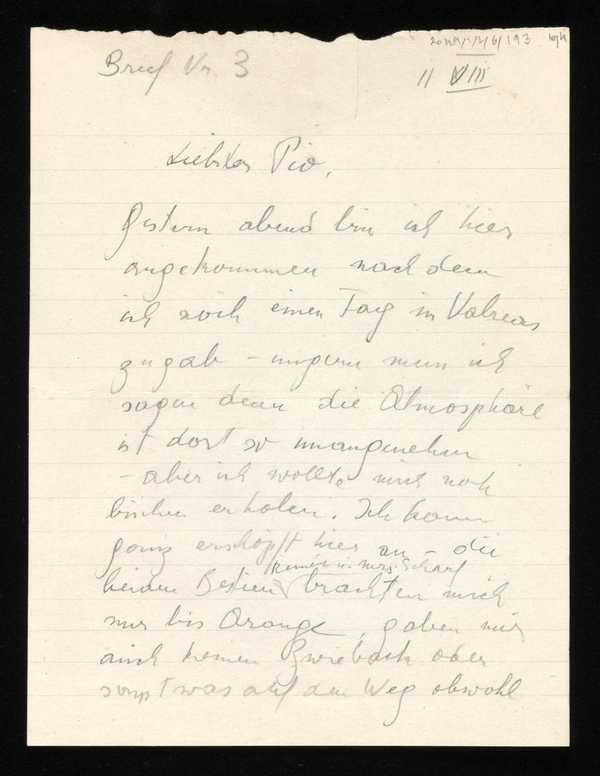 Brief Nr. 3
11 VIII
Liebster Pio,
Gestern abend bin ich hier
angekommen nachdem
ich noch einen Tag in Valreas
zugab – ungern muss ich
sagen denn die Atmosphäre
ist dort so unangenehm
– aber ich wollte mich noch
bischen erholen. Ich kam
ganz erschöpft hier an – die
Renée u. Mrs. Scharf
beiden Bestien brachten mich
nur bis Orange, gaben mir
auch keinen Zwieback oder
sonst was auf den Weg obwohl